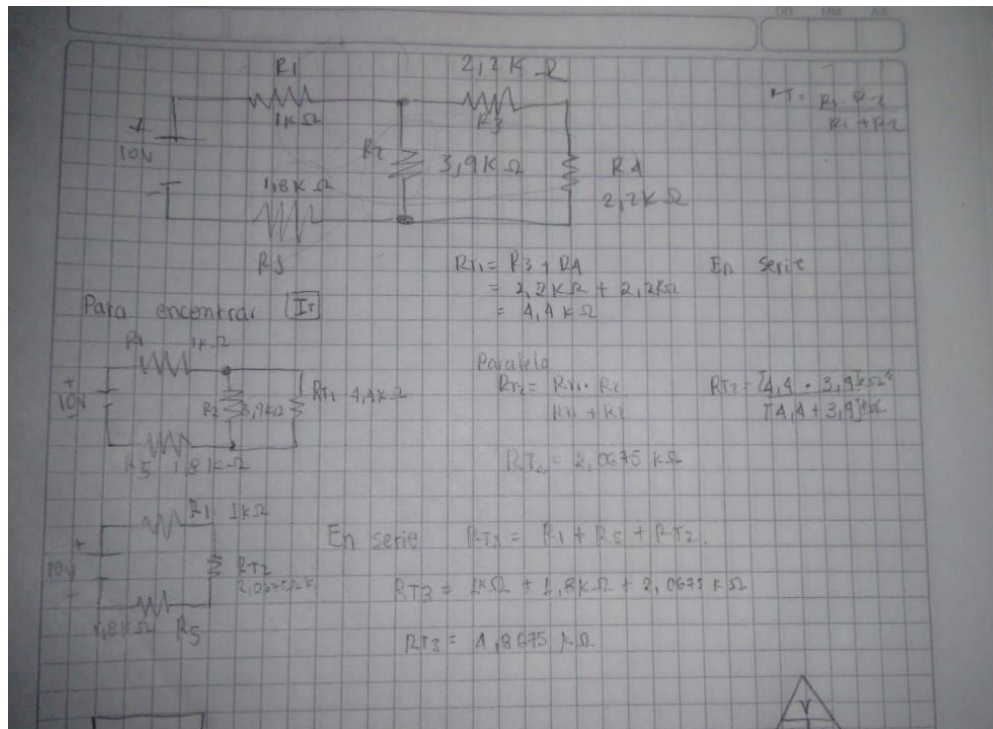 DD MM AA
R1
2,2K Ω
1KΩ
R3
rT = R1 · R2
R1 + R2
+
10V
R2
3,9K Ω
R4
2,2KΩ
-
1,8K Ω
R5
RT1 = R3 + R4
En serie
= 2,2KΩ + 2,2KΩ
= 4,4 KΩ
Para encontrar IT
R1 1KΩ
+
10V
R2 3,9KΩ
RT1 4,4KΩ
R5 1,8KΩ
Paralelo
RT2 = RT1 · R2
RT1 + R2
RT2 = [4,4 · 3,9]KΩ²
[4,4 + 3,9]KΩ
RT2 = 2,0675 KΩ
R1 1KΩ
+
10V
-
RT2
2,0675Ω K
1,8KΩ R5
En serie RT3 = R1 + R5 + RT2.
RT3 = 1KΩ + 1,8KΩ + 2,0675 KΩ
RT3 = 4,8675 KΩ
V